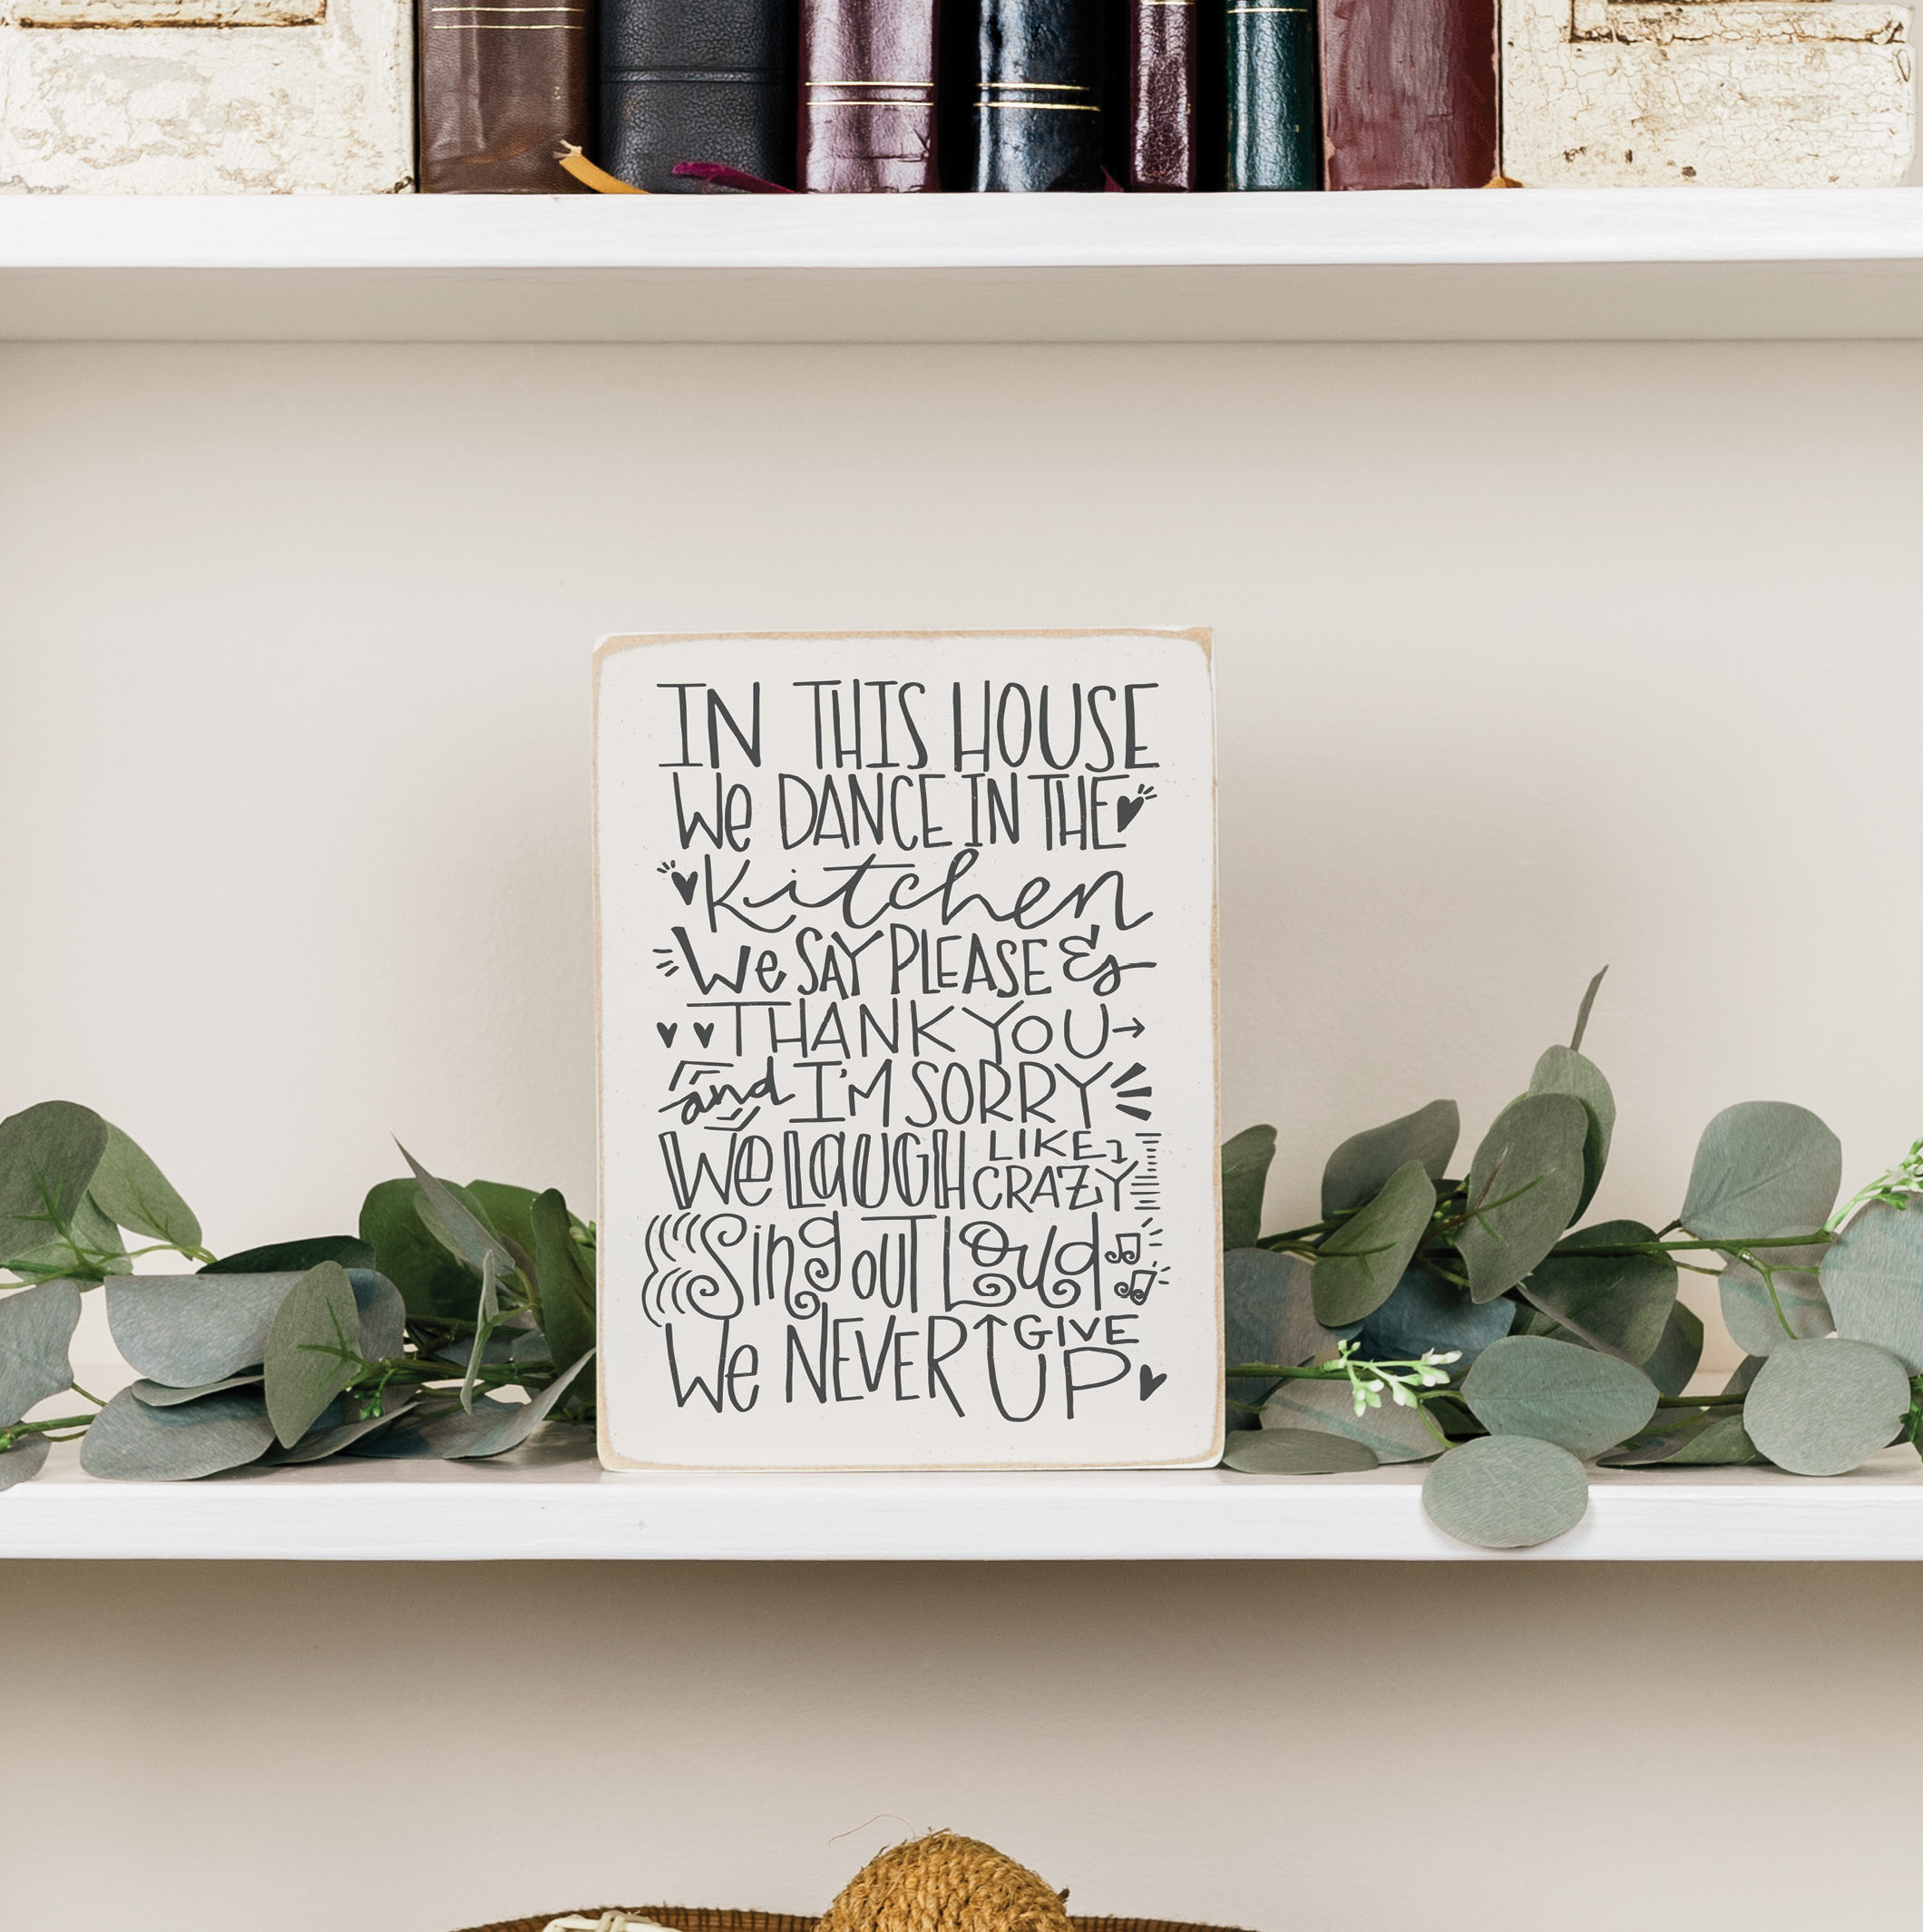 IN THIS HOUSE
We DANCE IN THE
Kitchen
We SAY PLEASE &
THANK YOU
and I'M SORRY
We LaUGH LIKE CRAZY
Sing out Loud
We NEVER GIVE UP